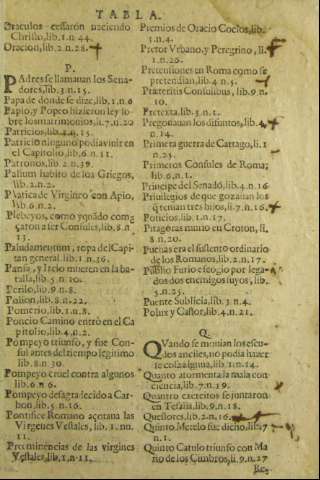 TABLA.
Oraculos cessaron naciendo
Christo, lib. 1. n. 44.
Oracion, lib. 2. n. 28.
P.
PAdres se llamauan los Sena-
dores, lib. 3. n. 15.
Papa de donde se dize, lib. 1. n. 6
Papio, y Popeo hizieron ley so-
bre los matrimonios, li. 7. n. 20
Patricios, lib. 4. n. 15.
Patricio ninguno podia viuir en
el Capitolio, lib. 6. n. 11.
Patronos, lib. 2. n. 39.
Palium habito de los Griegos,
lib. 2. n. 2.
Platica de Virginio con Apio,
lib. 6. n. 2.
Plebeyos, como y quãdo comẽ
çaron a ser Consules, lib. 8. n
13.
Paludamentum, ropa del Capi-
tan general. lib. 1. n. 36.
Pansa, y Ircio mueren en la ba-
talla, lib. 5. n. 10.
Perilo, lib. 9. n. 8.
Polion, lib. 8. n. 22.
Pomerio, lib. 1. n. 8.
Poncio Camino entrò en el Ca
pitolio, lib. 4. n. 2.
Pompeyo triunfo, y fue Con-
sul antes del tiempo legitimo
lib. 8. n. 30.
Pompeyo cruel contra algunos
lib. 6. n. 6.
Pompeyo desafia de lecido a Car-
bon, lib. 5. n. 16.
Pontifice Romano açotaua las
Virgenes Vestales, lib. 1. nu.
11.
Preeminencias de las virgines
Vestales, lib. 1. n. 11.
Premios de Oracio Cocles, lib.
1. n. 4.
Pretor Vrbano, y Peregrino, li.
1. n. 20.
Pretensiones en Roma como se
pretendian, lib. 4. n. 5.
Præteritis Consulibus, lib. 9. n.
10.
Pretexta, lib. 3. n. 1.
Pregonauan los difuntos, lib. 4.
n. 14.
Primera guerra de Cartago, li. 1
n. 25.
Primeros Consules de Roma;
lib. 6. n. 1.
Principe del Senado, lib. 4. n. 16
Priuilegios de que gozauan los
q̃ tenian tres hijos, li. 7. n. 16.
Poticios, lib. 1. n. 17.
Pitagoras murio en Croton, li.
8. n. 20.
Puches era el sustento ordinario
de los Romanos, lib. 2. n. 17.
Publio Furio escogio por lega-
dos dos enemigos suyos, lib.
3. n. 25.
Puente Sublicia, lib. 3. n. 4.
Polux y Castor, lib. 4. n. 21.
Q.
QVando se mouian los escu-
dos anciles, no podia hazer
se cosa alguna, lib. 1. n. 14.
Quanto atormenta la mala con
ciencia, lib. 7. n. 19.
Quatro exercitos se juntaron
en Tesalia, lib. 9. n. 18.
Questores, lib. 2. n. 16.
Quinto Metelo fue dichoso, lib. 7
n. 1.
Quinto Catulo triunfo con Ma
rio de los Cimbros, li. 9. n. 27